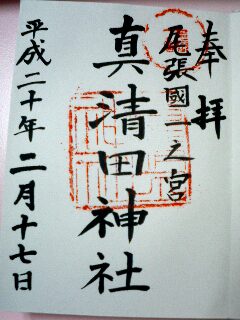 奉拝
尾張國一之宮
真清田神社
平成二十年二月十七日